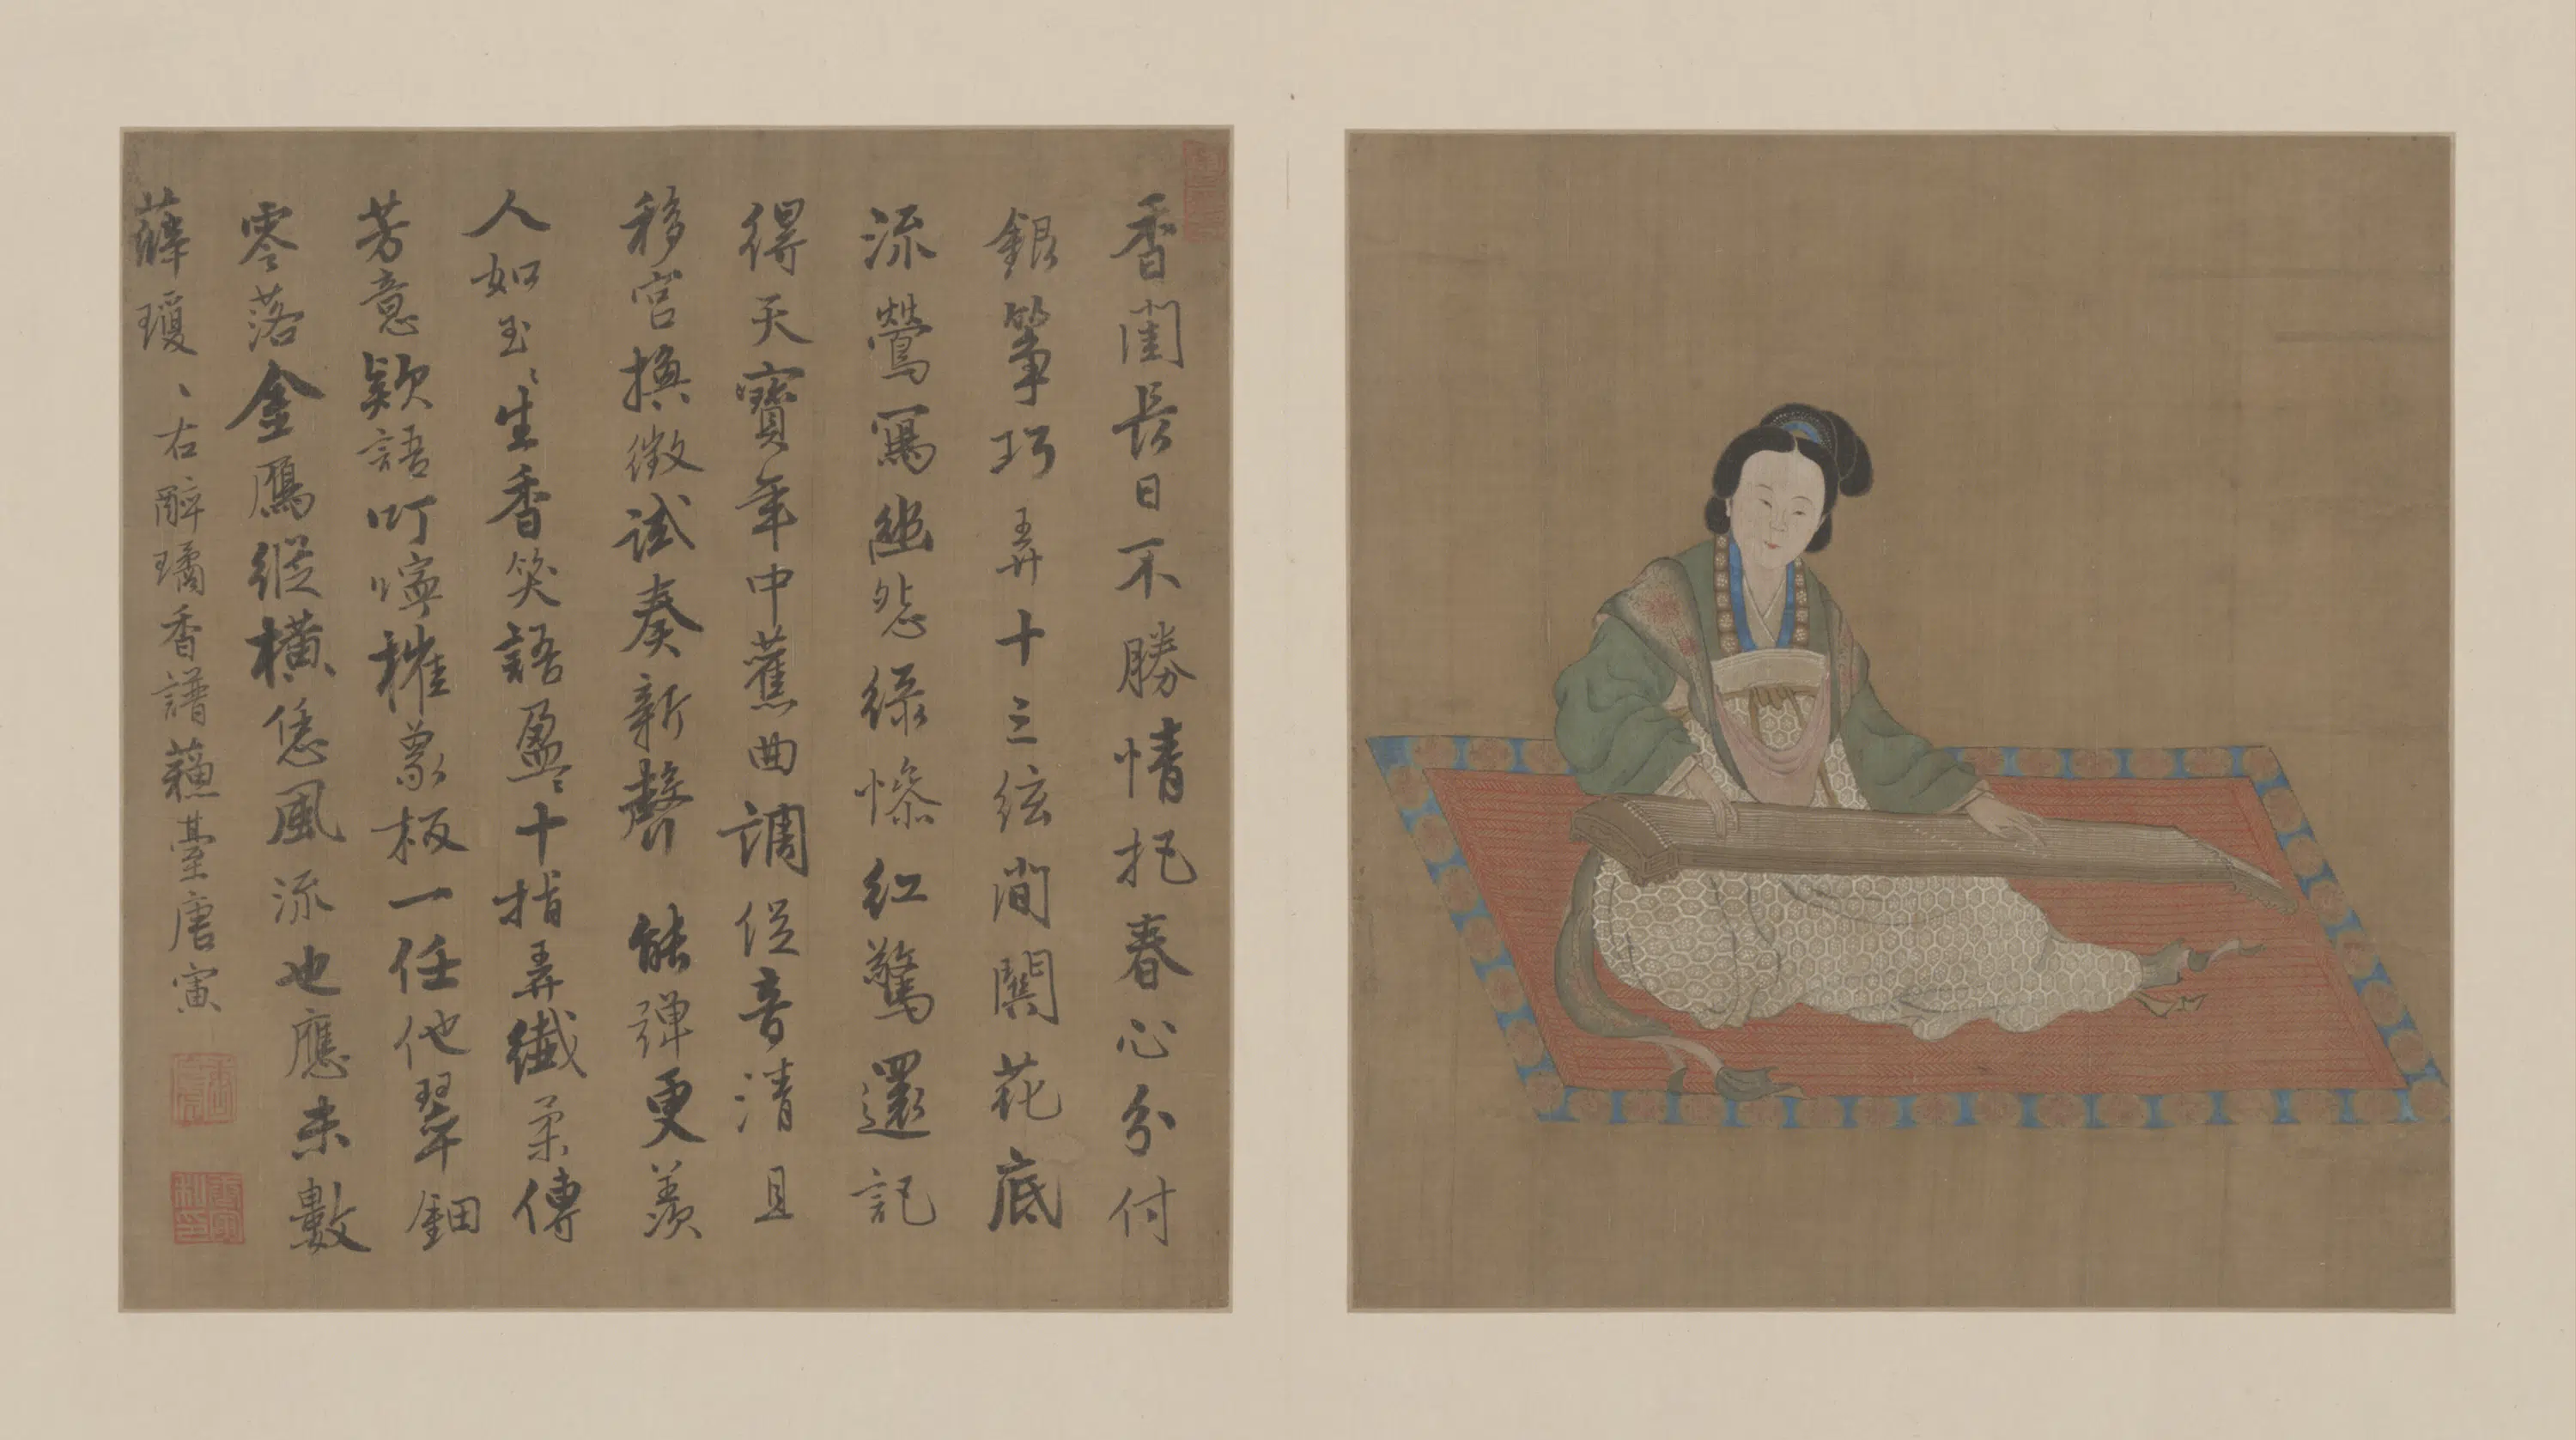 香閨長日不勝情把春心分付
銀箏巧弄十三弦間關花底
流鶯寫幽愁綠慘紅驚還記
得天寶年中舊曲調促音清且
移宮換徵試奏新聲能彈更羨
人如玉〻生香笑語盈〻十指弄纖柔傳
芳意款語叮嚀摧象板一任他翠鈿
零落金鴈縱橫恁風流也應未數
薛瓊〻右醉瑤香譜蘇臺唐寅